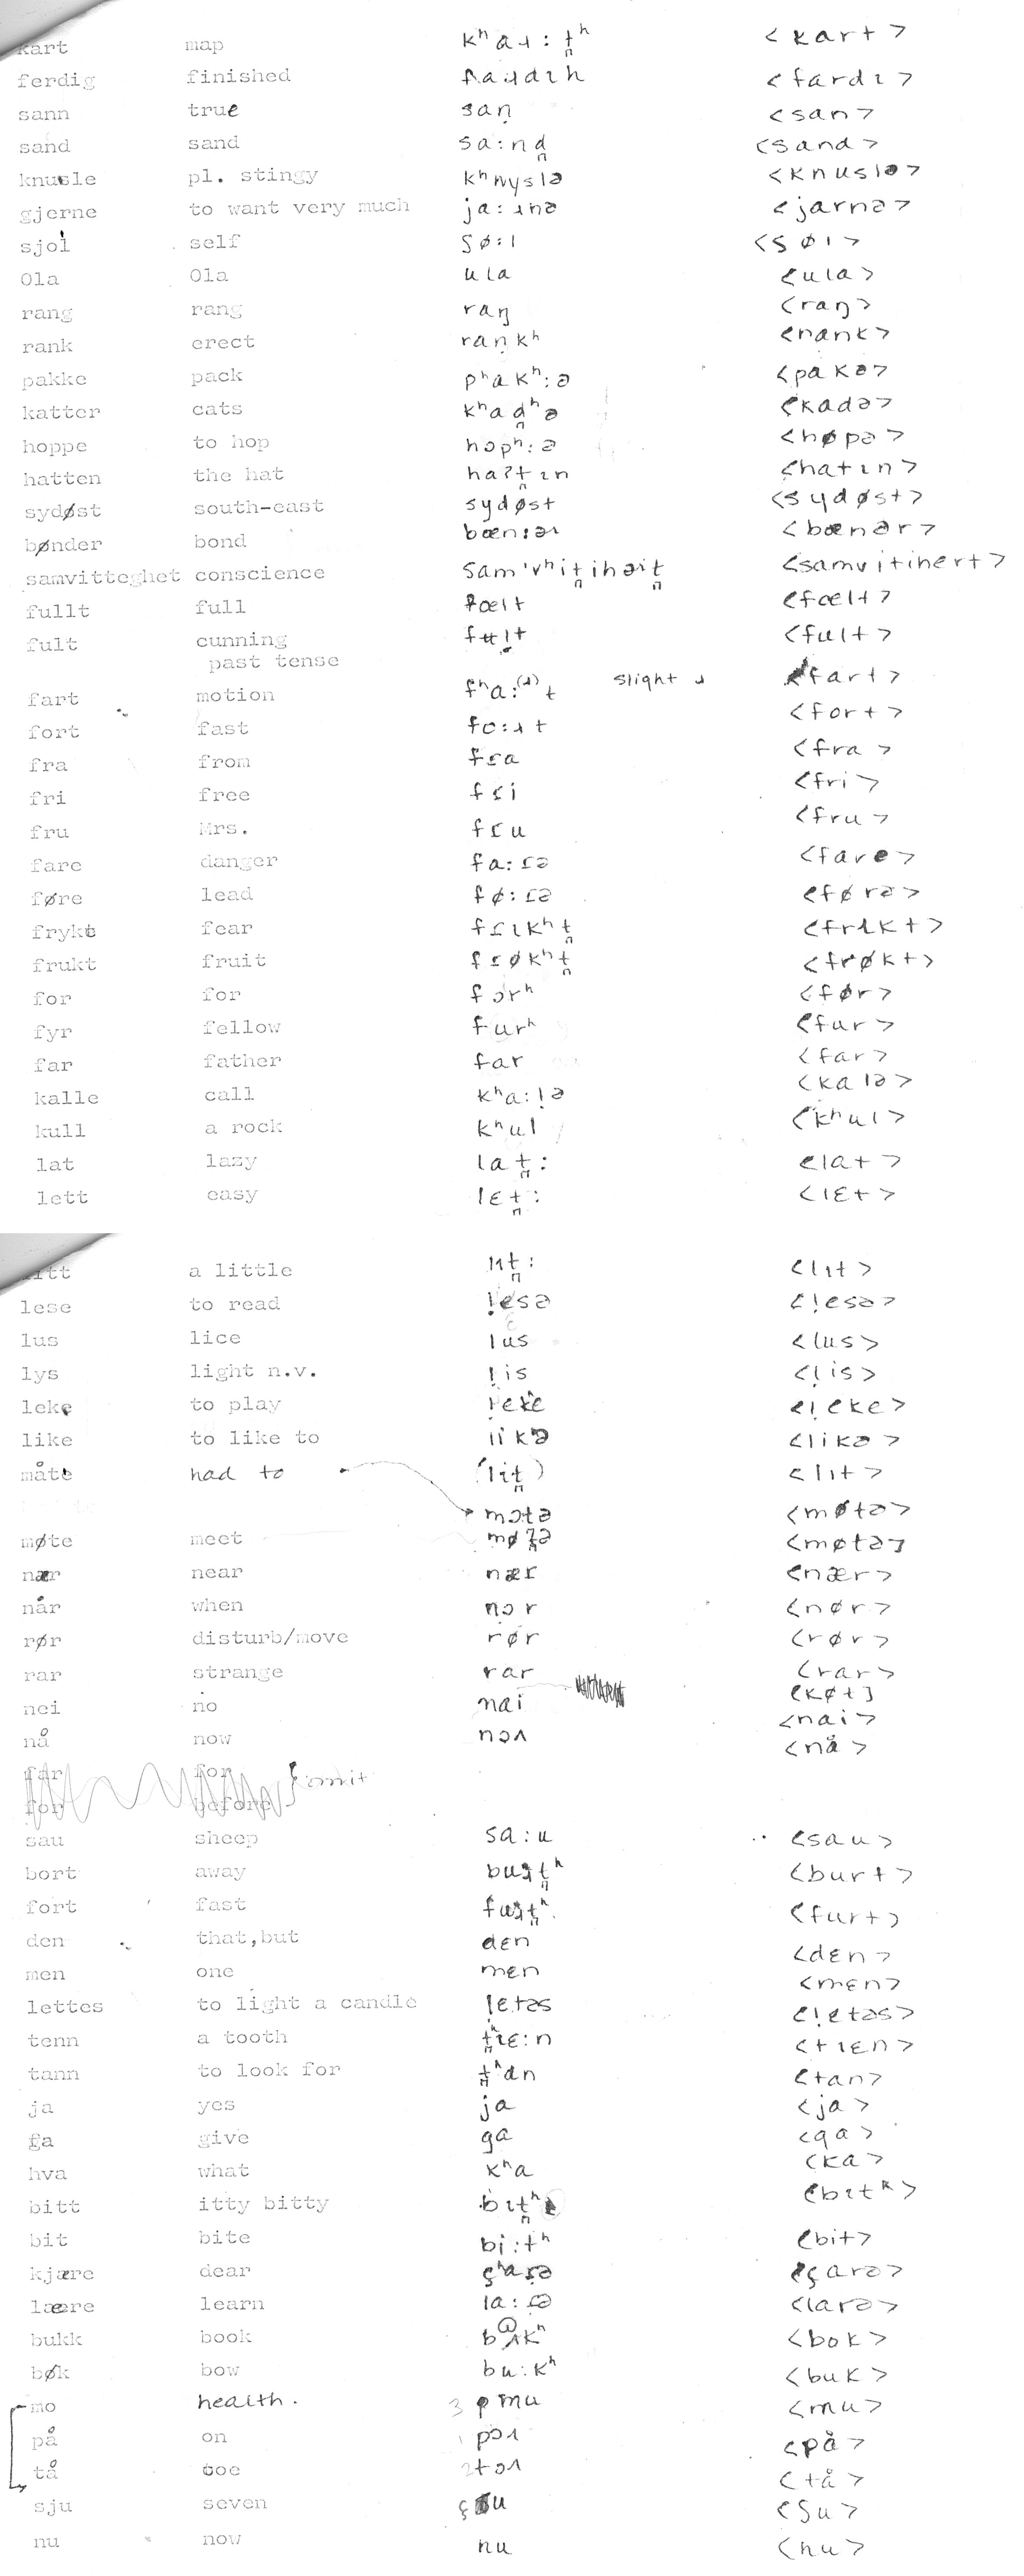 kart map kʰaɹ:t̪ʰ <kart>
ferdig finished faɹdɪh <fardɪ>
sann true saṇ <san>
sand sand sa:nd̪ <sand>
knusle pl. stingy kʰnyslə <knuslə>
gjerne to want very much ja:ɹnə <jarnə>
sjol self ʃø:l <ʃøl>
Ola Ola ula <ula>
rang rang raŋ <raŋ>
rank erect raṇkʰ <rank>
pakke pack pʰakʰ:ə <pakə>
katter cats kʰad̪ʰə <kadə>
hoppe to hop hɔpʰ:ə <høpə>
hatten the hat haʔt̪ɪn <hatɪn>
sydøst south-east sydøst <sydøst>
bønder bond bœn:əɹ <bœnər>
samvitteghet conscience sam'vʰit̪ihəit̪ <samvitihert>
fullt full fœlt <fœlt>
fult cunning fʉlt <fult>
past tense
fart motion fʰa:⁽ɹ⁾t slight ɹ <fart>
fort fast fo:ɹt <fort>
fra from fɾa <fra>
fri free fɾi <fri>
fru Mrs. fɾu <fru>
fare danger fa:ɾə <fare>
føre lead fø:ɾə <førə>
frykt fear fɾɪkʰt̪ <frɪkt>
frukt fruit fɾøkʰt̪ <frøkt>
for for fɔrʰ <før>
fyr fellow furʰ <fur>
far father far <far>
kalle call kʰa:ḷə <kalə>
kull a rock kʰul <kʰul>
lat lazy lat̪: <lat>
lett easy lɛt̪: <lɛt>
litt a little lɪt̪: <lɪt>
lese to read ḷesə <ḷesə>
lus lice lus <lus>
lys light n.v. ḷis <ḷis>
leke to play ḷeke <ḷeke>
like to like to likə <likə>
måte had to (lit̪) <lɪt>
mɔtə <møtə>
møte meet møt̪ə <møtə]
nær near nær <nær>
når when nɔr <nør>
rør disturb/move rør <rør>
rar strange rar <rar>
[køt]
nei no nai <nai>
nå now nɔʌ <nå>
far for omit
for before
sau sheep sa:u <sau>
bort away buɹt̪ʰ <burt>
fort fast fuɹt̪ʰ <furt>
den that,but dɛn <dɛn>
men one mɛn <mɛn>
lettes to light a candle ḷetəs <ḷetəs>
tenn a tooth t̪ʰɪɛ:n <tɪɛn>
tann to look for t̪ʰan <tan>
ja yes ja <ja>
ga give ga <ga>
hva what kʰa <ka>
bitt itty bitty bɪt̪ʰ <bɪtʰ>
bit bite bi:tʰ <bit>
kjære dear çʰaɾə <çarə>
lære learn la:ɾə <larə>
bukk book bʌkʰ <bok>
bøk bow bu:kʰ <buk>
mo health. 3 mu <mu>
på on 1 pɔʌ <på>
tå toe 2 tɔʌ <tå>
sju seven çu <ʃu>
nu now nu <nu>